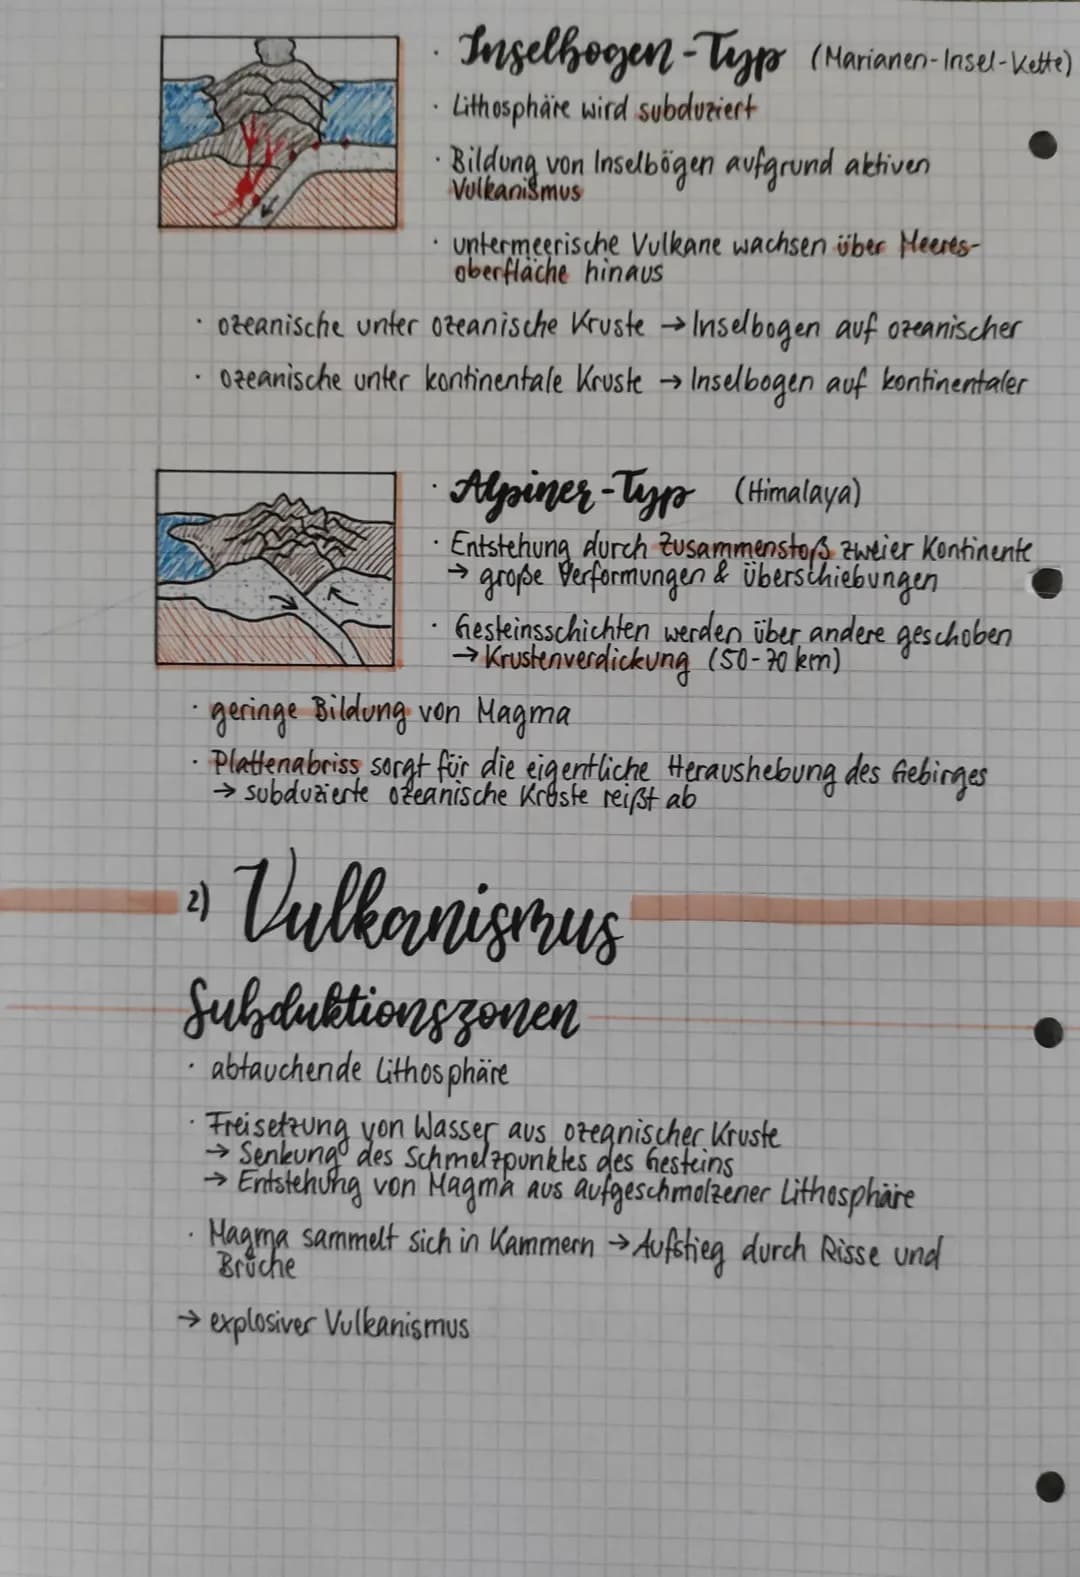 · Inselbogen-Typ (Marianen-Insel-Kette)
· Lithosphäre wird subduziert
· Bildung von Inselbögen aufgrund aktiven
Vulkanismus
· untermeerische Vulkane wachsen über Meeres-
oberfläche hinaus
· ozeanische unter ozeanische Kruste → Inselbogen auf ozeanischer
· ozeanische unter kontinentale Kruste → Inselbogen auf kontinentaler
· Alpiner-Typ (Himalaya)
· Entstehung durch Zusammenstoß zweier Kontinente
→ große Verformungen & Überschiebungen
· Gesteinsschichten werden über andere geschoben
→ Krustenverdickung (50-70 km)
· geringe Bildung von Magma
· Plattenabriss sorgt für die eigentliche Heraushebung des Gebirges
→ subduzierte ozeanische Kruste reißt ab
2) Vulkanismus
Subduktionszonen
· abtauchende Lithosphäre
· Freisetzung von Wasser aus ozeanischer Kruste
→ Senkung des Schmelzpunktes des Gesteins
→ Entstehung von Magma aus aufgeschmolzener Lithosphäre
· Magma sammelt sich in Kammern → Aufstieg durch Risse und
Brüche
→ explosiver Vulkanismus